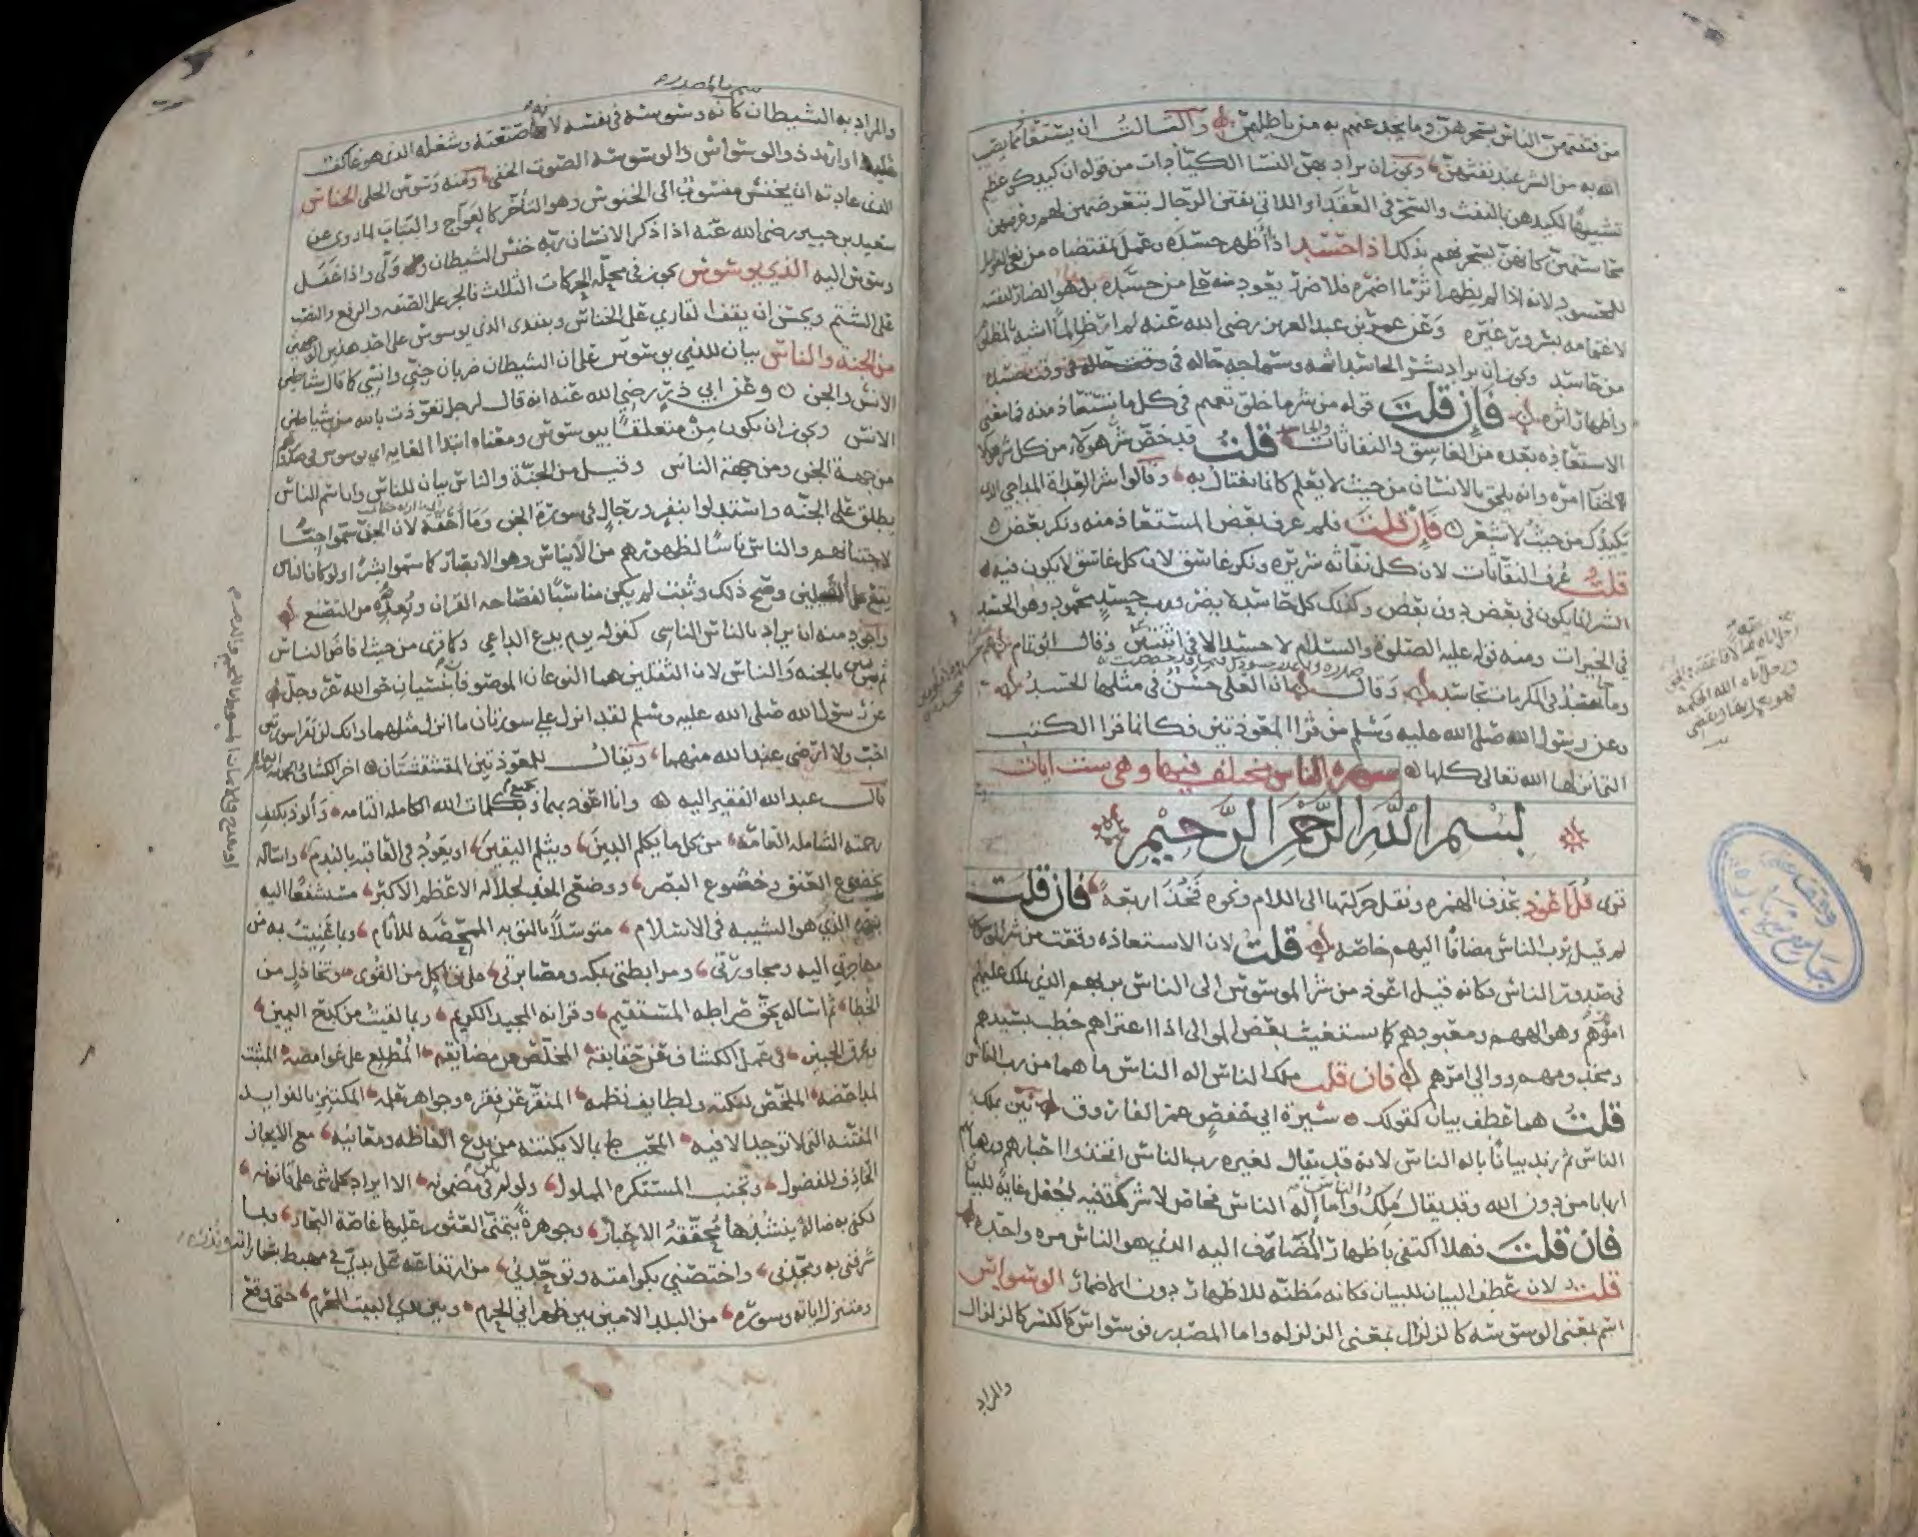 من فتنتهن الناس بسحرهن وما يخدعنهم به من باطلهن والثالث ان يستعاذ مما يصيب
الله به من الشر عند نفثهن ويجوز ان يراد بهن النسا الكيادات من قوله ان كيدكن عظيم
تشبيها لكيدهن بالنفث والسحر في العقد او اللاتي يفتن الرجال بتعرضهن لهم وعرضهن
محاسنهن كانهن يسحرنهم بذلك اذا حسد اذا ظهر حسده وعمل بمقتضاه من بغي الغوايل
للمحسود لانه اذا لم يظهر اثر ما اضمره فلا ضرر يعود منه على من حسده بل هو الضار لنفسه
لاغتمامه بسرور غيره وعن عمر بن عبد العزيز رضي الله عنه لم ار ظالما اشبه بالمظلوم
من حاسد ويجوز ان يراد بشر الحاسد اثمه وسماجه حاله في وقت حسده
واظهاره اثره فان قلت قوله من شر ما خلق تعميم في كل ما يستعاذ منه فما معنى
الاستعاذه بعده من الغاسق والنفاثات والحاسد قلت قد خص شر هولاء من كل شر
لخفا امره وانه يلحق الانسان من حيث لا يعلم كانما يغتال به وقالوا شر العداة المداجي الذي
يكيدك من حيث لا تشعر فان قلت فلم عرف بعض المستعاذ منه ونكر بعض
قلت عرف النفاثات لان كل نفاثه شريره ونكر غاسق لان كل غاسق لا يكون فيه
الشر انما يكون في بعض دون بعض وكذلك كل حاسد لا يضر ورب حسد محمود وهو الحسد
في الخيرات ومنه قوله عليه الصلوة والسلام لا حسد الا في اثنتين وقال ابو تمام
وما حاسد في المكرمات بحاسد وقال ان العلى حسن في مثلها الحسد
وعن رسول الله صلى الله عليه وسلم من قرا المعوذتين فكانما قرا الكتب
التي انزلها الله تعالى كلها سورة الناس مختلف فيها وهي ست ايات
بسم الله الرحمن الرحيم
قرى قل اعوذ بحذف الهمزه ونقل حركتها الى اللام ونحوه فخذ اربعة فان قلت
لم قيل برب الناس مضافا اليهم خاصه قلت لان الاستعاذه وقعت من شر الموسوس
في صدور الناس فكانه قيل اعوذ من شر الموسوس الى الناس بربهم الذي يملك عليهم
امورهم وهو الههم ومعبودهم كما يستغيث بعض الموالي اذا اعتراهم خطب بسيدهم
ومخدومهم ووالي امرهم فان قلت ملك الناس اله الناس ما هما من رب الناس
قلت هما عطف بيان كقولك سيرة ابي حفص عمر الفاروق بين بملك
الناس ثم زيد بيانا باله الناس لانه قد يقال لغيره رب الناس اتخذوا احبارهم ورهبانهم
اربابا من دون الله وقد يقال ملك الناس واما اله الناس فخاص لا شركة فيه فجعل غاية للبيان
فان قلت فهلا اكتفي باظهار المضاف اليه الذي هو الناس مره واحده
قلت لان عطف البيان للبيان فكانه مظنه للاظهار دون الاضمار الوسواس
اسم بمعنى الوسوسه كالزلزال بمعنى الزلزله واما المصدر فوسواس بالكسر كالزلزال
والمراد
سمي بالمصدر
والمراد به الشيطان كانه وسوسه في نفسه لانها صنعته وشغله الذي هو عاكف
عليه او اريد ذو الوسواس والوسوسة الصوت الخفي ومنه وسوس الحلي الخناس
الذي عادته ان يخنس منسوب الى الخنوس وهو التاخر كالعواج والبتات لما روي عن
سعيد بن جبير رضي الله عنه اذا ذكر الانسان ربه خنس الشيطان وولى واذا غفل
وسوس اليه الذي يوسوس يجوز في محله الحركات الثلاث فالجر على الصفه والرفع والنصب
على الشتم ويحسن ان يقف القاري على الخناس ويبتدى الذي يوسوس على احد هذين الوجهين
من الجنة والناس بيان للذي يوسوس على ان الشيطان ضربان جني وانسي كما قال شياطين
الانس والجن وعن ابي ذر رضي الله عنه انه قال لرجل تعوذت بالله من شياطين
الانس ويجوز ان يكون من متعلقا بيوسوس ومعناه ابتدا الغايه اي يوسوس في صدورهم
من جهة الجن ومن جهة الناس وقيل من الجنة والناس بيان للناس وان اسم الناس
يطلق على الجنه واستدلوا بنفر ورجال في سورة الجن وما احقه لان الجن سموا جنا
لاجتنانهم والناس ناسا لظهورهم من الايناس وهو الابصار كما سموا بشرا ولو كان الناس
يقع على القبيلين وصح ذلك وثبت لم يكن مناسبا لفصاحه القران وبعده من التصنع
واجود منه ان يراد بالناس الناسي كقوله يوم يدع الداعي وكما قرى من حيث افاض الناس
ثم يبين بالجنه والناس لان الثقلين هما النوعان الموصوفان بنسيان حق الله عز وجل
عن رسول الله صلى الله عليه وسلم لقد انزل علي سورتان ما انزل مثلهما وانك لن تقرا سورتين
احب ولا ارضى عند الله منهما ويقال للمعوذتين المقشقشتان اخر الكشاف
قال عبد الله الفقير اليه وانا اعوذ بهما وبجميع كلمات الله الكامله التامه والوذ بكنف
رحمته الشامله العامه من كل ما يكلم الدين ويثلم اليقين او يعود في العاقبه بالندم واساله
بخضوع العنق وخشوع البصر ووضع الخد لجلاله الاعظم الاكبر متشفعا اليه
بنوره الذي هو الشيبه في الاسلام متوسلا بالتوبه الممحصه للاثام وبما عنيت به من
مهاجرتي اليه ومجاورتي ومرابطتي بمكه ومصابرتي على تواكل من القوى وتخاذل من
الخطا ثم اساله بحق صراطه المستقيم وقرانه المجيد الكريم وبما لقيت من كدح اليمين
وعرق الجبين في عمل الكشاف عن حقايقه المخلص عن مضايقه المطلع على غوامضه المثبت
لمداحضه الملخص لنكته ولطايف نظمه المنقر عن فقره وجواهر علمه المكتنز بالفوايد
المفتنه التي لا توجد الا فيه المحيط بما لا يكتنه من بدع الفاظه ومعانيه مع الايجاز
الحاذف للفضول وتجنب المستكره المملول ولو لم يكن في مضمونه الا ايراد كل شي على قانونه
لكفى به ضالة ينشدها محققة الاخبار وجوهرة يتمنى العثور عليها غاصة البحار وبما
شرفني به ومجدني واختصني بكرامته وتوحدني من ارتفاعه على يدي في مهبط بشاراته ونذره
ومتنزل اياته وسوره من البلد الامين بين ظهراني الحرم وبين يدي البيت المحرم حتى وقع